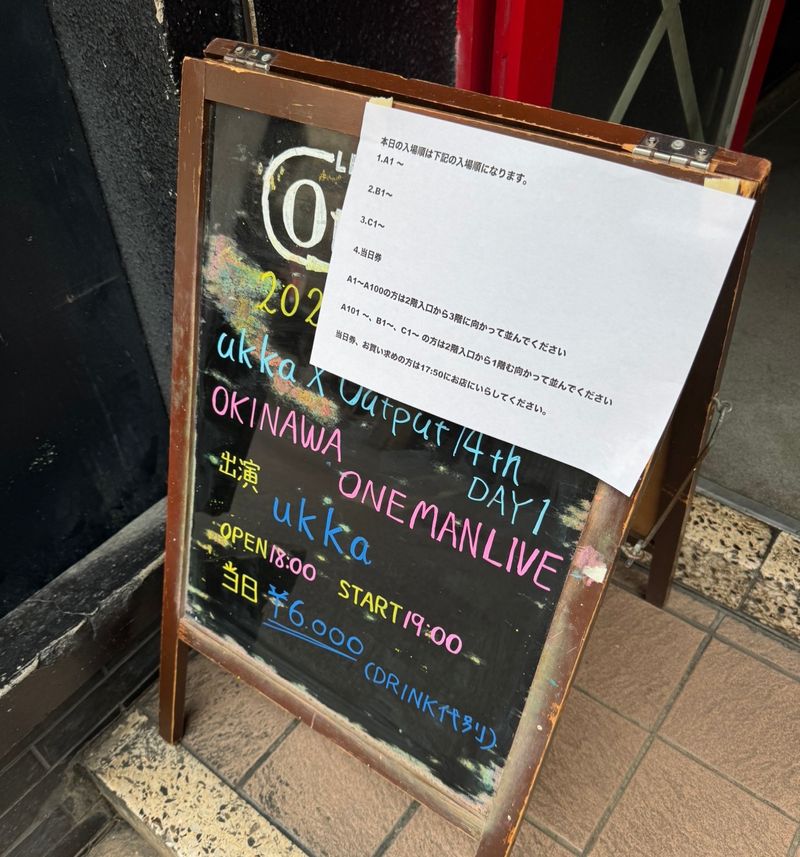 本日の入場順は下記の入場順になります。
1.A1 〜
2.B1〜
3.C1〜
4.当日券
A1〜A100の方は2階入口から3階に向かって並んでください
A101 〜、B1〜、C1〜 の方は2階入口から1階む向かって並んでください
当日券、お買い求めの方は17:50にお店にいらしてください。
202
ukka x Output 14th
DAY1
OKINAWA
ONEMAN LIVE
出演
ukka
OPEN18:00 START19:00
当日 ¥6.000
(DRINK代別)